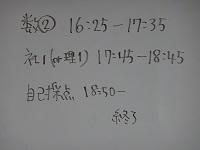 数② 16:25-17:35
社1(物理1) 17:45-18:45
自己採点 18:50-
終了